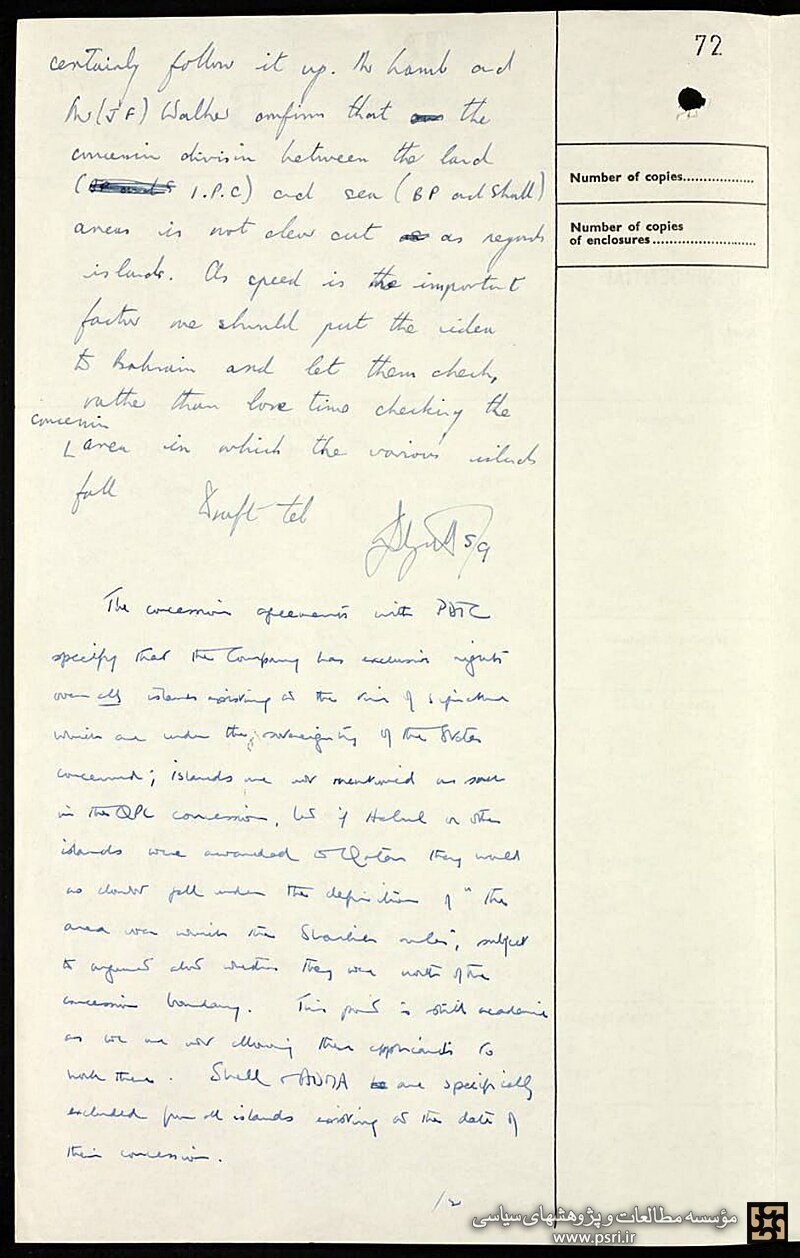 72
certainly follow it up. Mr Lamb and
Mr (J F) Walker confirm that the
concession division between the land
( I.P.C) and sea (BP and Shell)
areas is not clear cut as regards
islands. As speed is the important
factor we should put the idea
to Bahrain and let them check,
rather than lose time checking the
concession
area in which the various islands
fall
Draft tel
5/9
The concession agreements with PDTC
specify that the Company has exclusive rights
over all islands existing at the time of signature
which are under the sovereignty of the States
concerned; islands are not mentioned as such
in the QPC concession, but if Halul or other
islands were awarded to Qatar they would
no doubt fall under the definition of "the
area over which the Shaikh rules", subject
to argument about whether they were north of the
concession boundary. This point is still academic
as we are not allowing these applicants to
work there. Shell + ADMA are specifically
excluded from all islands existing at the date of
their concession.
/2
Number of copies..................
Number of copies
of enclosures..........................
مؤسسه مطالعات و پژوهشهای سیاسی
www.psri.ir